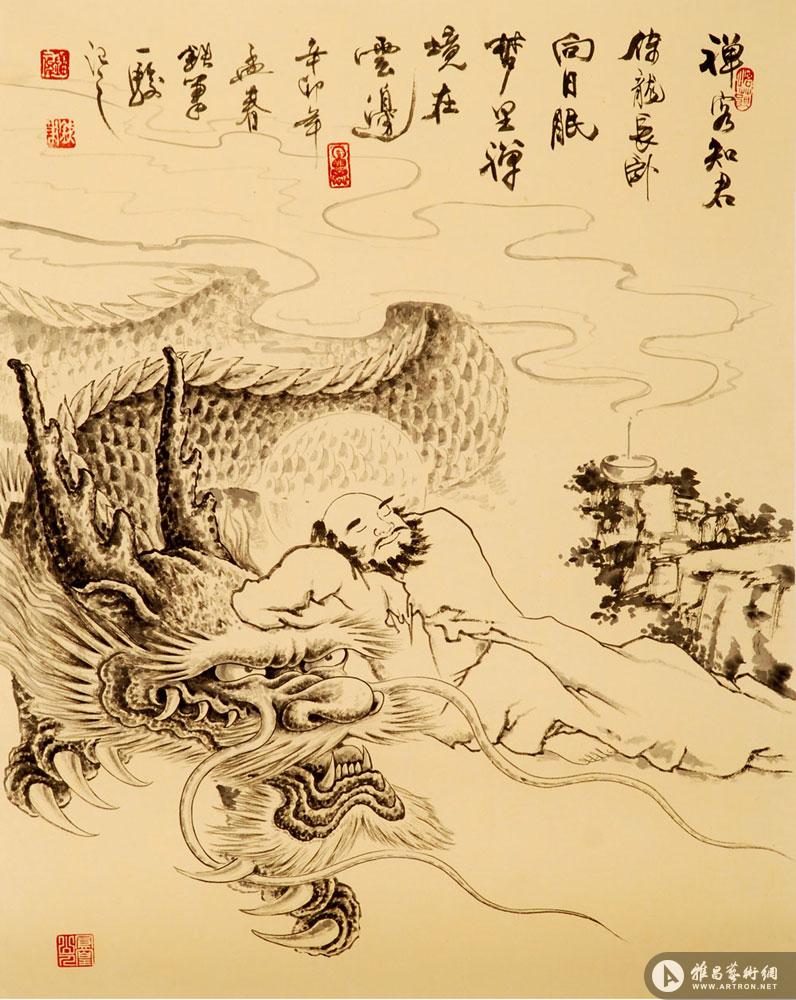 禅客知君
龍長卧
向日眠
梦里禅
境在
雲邊
辛卯年
孟春
一骏
记之
雅昌藝術網
WWW.ARTRON.NET